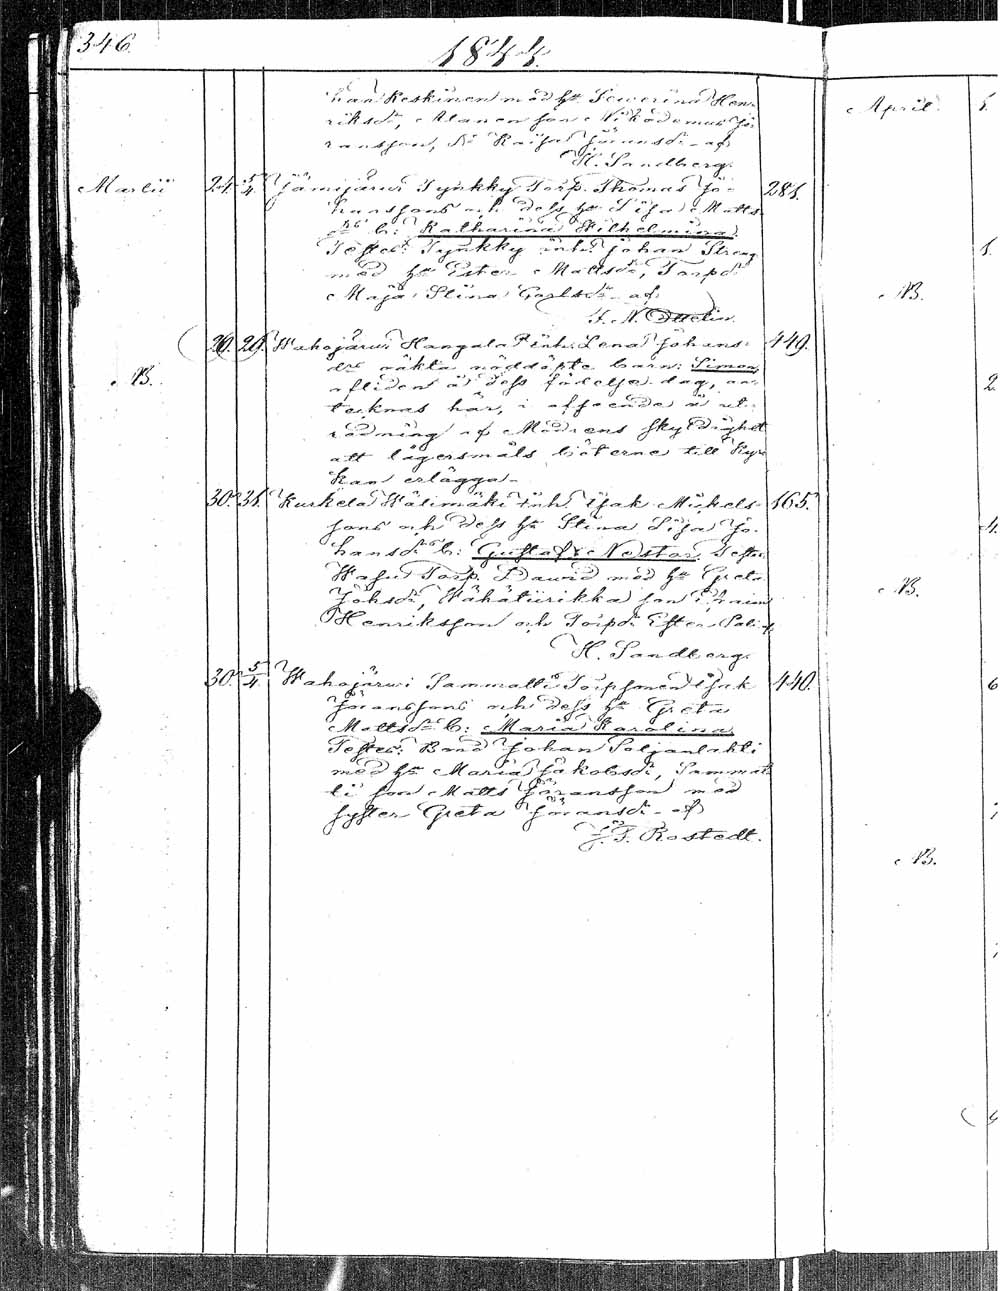 346.
1844.
han Keskinen med h. Sewerina Hen-
riksd:r, Alanen son Nikodemus Jö-
ransson, D:r Kaisa Jöransd:r - af
H. Sandberg.
Martii 24. 5/4. Jämijärwi Tynkky Torp. Thomas Jo- 281.
hanssons och dess h. Lisa Matts
d:rs b: Katharina Wilhelmina
Testes: Tynkky inh. Johan Streng
med h. Ester Mattsd:r, Torpd:r
Maja Stina Carlsd:r - af
F. N.
29. 29. Wahojärwi Kangala inh. Lena Johans- 449.
d:rs oäkta nöddöpte barn: Simon,
NB.
afliden å dess födelse dag, an-
tecknas här, i afseende å ut-
redning af Modrens skyldighet
att lägersmåls böterne till Kyr-
kan erlägga -
30. 31. Kurkela Wälimäki inh. Isak Mickels- 165.
sons och dess h. Stina Lisa Jo-
hansd:rs b: Gustaf Nestor. Testes:
Torp. David med h. Greta
Johsd:r, Wähätiirikka son
Henriksson och Torpd:r Ester af
H. Sandberg.
30. 5/4. Wahojärwi Sammatti Torpsonen Isak 440.
Jöranssons och dess h. Greta
Mattsd:rs b: Maria Karolina
Testes: Bond Johan Poljanlahti
med h. Maria Jakobsd:r, Sammat-
ti son Matts Jöransson med
syster Greta Jöransd:r - af
J. F. Rostedt.
April.
NB.
NB.
NB.